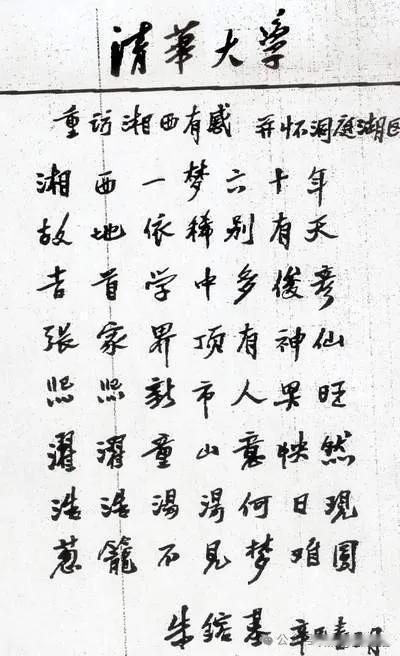 清華大学
重访湘西有感 并怀洞庭湖区
湘西一梦六十年
故地依稀别有天
吉首学中多俊彦
张家界顶有神仙
熙熙新市人男旺
濯濯童山意怏然
浩浩湯湯何日現
葱籠不見梦难圆
朱鎔基 辛巳 月
公众